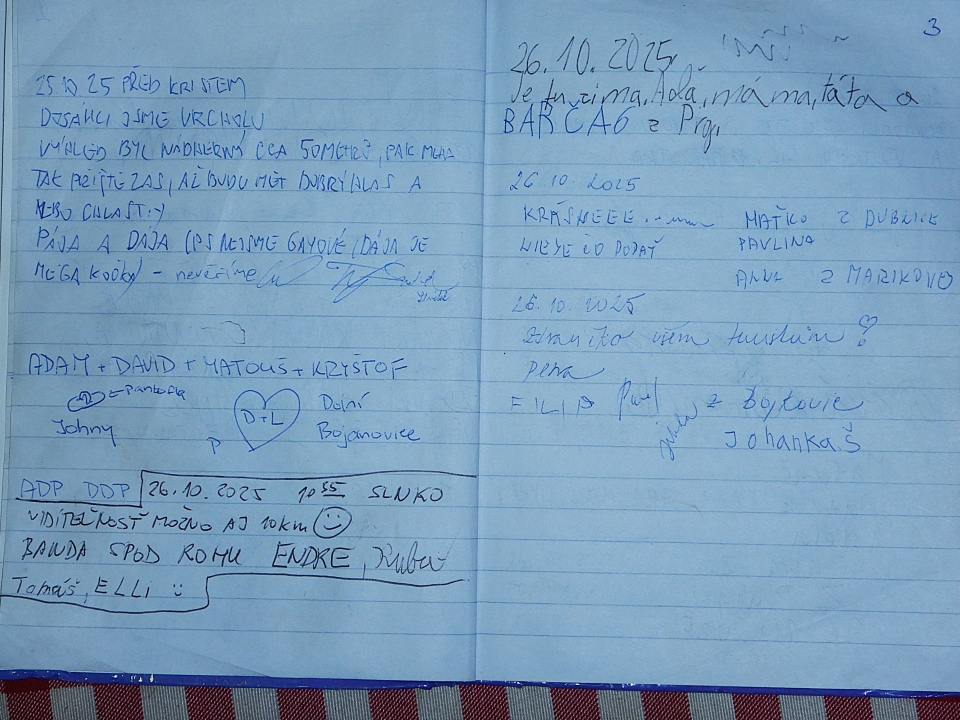 25.10.25 PŘED KRISTEM
DOSÁHLI JSME VRCHOLU
VÝHLED BYL NÁDHERNÝ CCA 50METRŮ, PAK MLHA
TAK PŘÍŠTĚ ZAS, AŽ BUDU MÍT DOBRÝ HLAS A
NEBO CHLAST:Y
PÁJA A DÁJA (PS NEJSME GAYOVÉ (DÁJA JE
MEGA KOČKA) - nevěříme
ADAM + DAVID + MATOUŠ + KRYŠTOF
Pantofle
Johny
D+L
Dolní
Bojanovice
P
ADP DOP 26.10.2025 10 55 SLNKO
VIDITEĽNOSŤ MOŽNO AJ 10km
BANDA SPOD ROHU ENDRE, Kubo
Tomáš, ELLi
3
26.10.2025
Je tu zima, Áďa, máma, táta a
BARČA6 z Prg.
26.10.2025
KRÁSNEEE MAŤKO Z DUBNICE
NIEJE ČO DODAŤ PAVLINA
ANNA Z MARIKOVEJ
26.10.2025
všem
FILIP Pavel z Bojkovic
Johanka Š